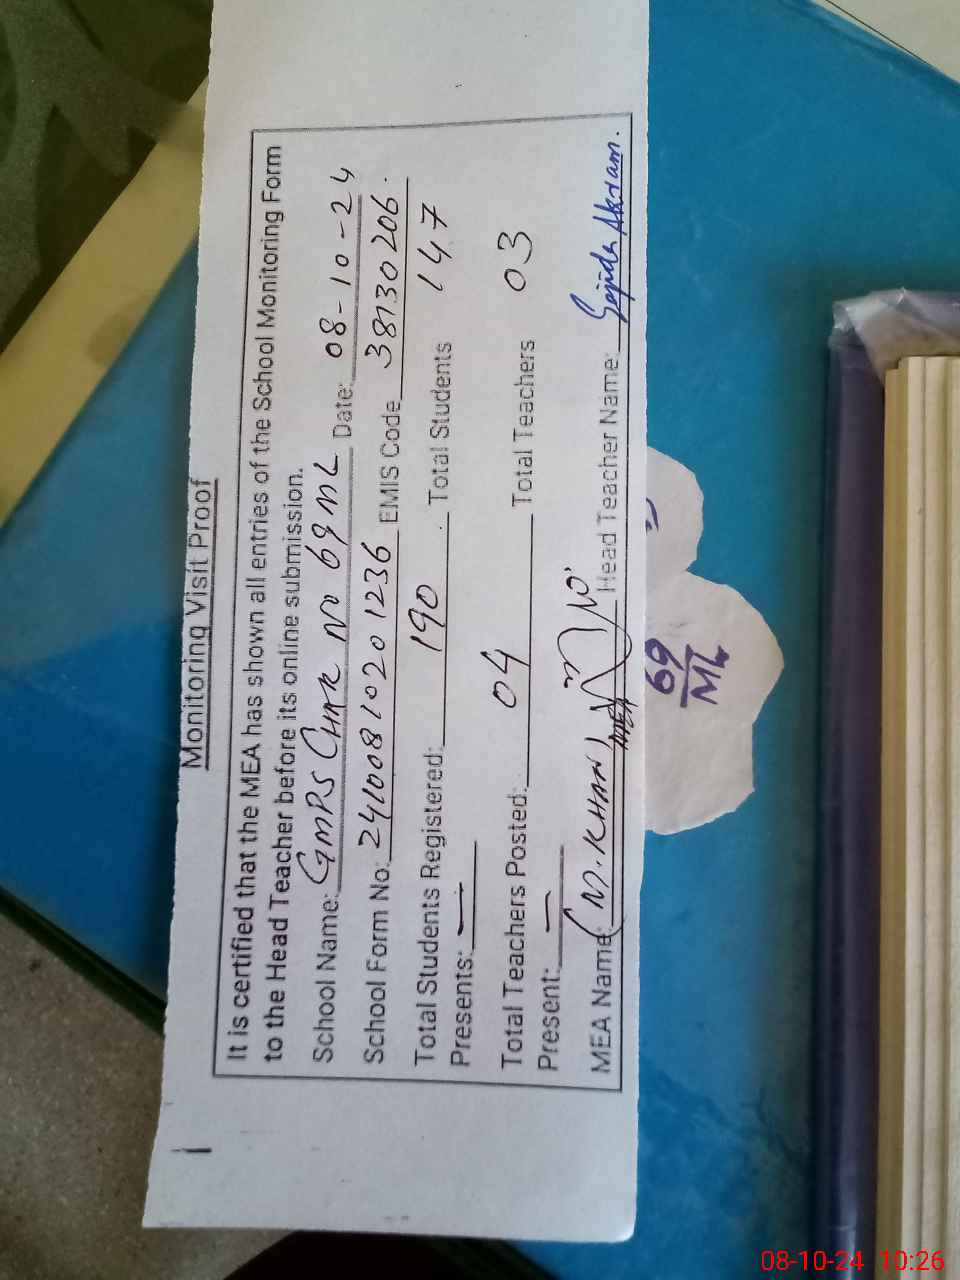 Monitoring Visit Proof
It is certified that the MEA has shown all entries of the School Monitoring Form
to the Head Teacher before its online submission.
School Name: GMPS CHAK NO 69 ML Date: 08-10-24
School Form No: 24100810201236 EMIS Code 38130206.
Total Students Registered: 190 . Total Students 147
Presents: —
Total Teachers Posted: 04 Total Teachers 03
Present: —
MEA Name: (M. KHAN) Head Teacher Name: Sajida Akram.
MEA
69
ML
08-10-24 10:26